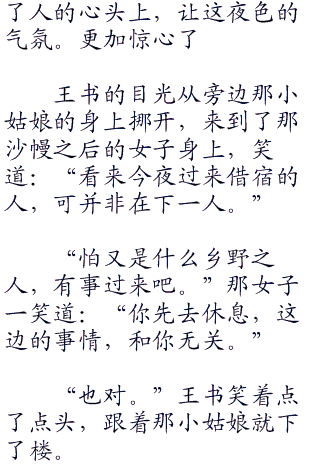 了人的心头上，让这夜色的
气氛。更加惊心了
王书的目光从旁边那小
姑娘的身上挪开，来到了那
沙幔之后的女子身上，笑
道：“看来今夜过来借宿的
人，可并非在下一人。”
“怕又是什么乡野之
人，有事过来吧。”那女子
一笑道：“你先去休息，这
边的事情，和你无关。”
“也对。”王书笑着点
了点头，跟着那小姑娘就下
了楼。